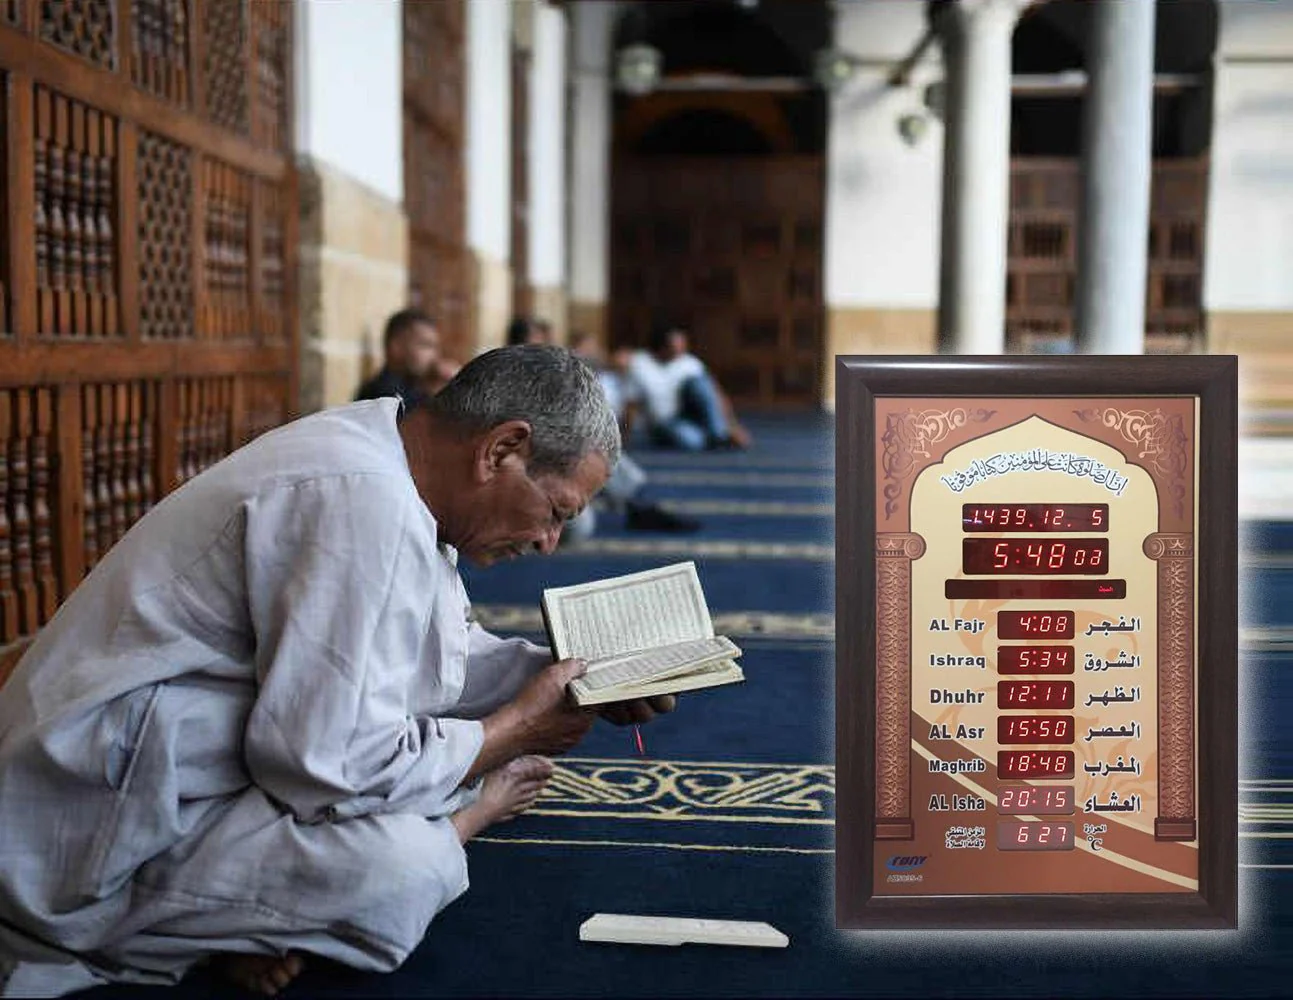 إن الصلوة كانت على المؤمنين كتابا موقوتا
1439.12. 5
5:48 03
السبت
AL Fajr 4:08 الفجر
Ishraq 5:34 الشروق
Dhuhr 12:11 الظهر
AL Asr 15:50 العصر
Maghrib 18:48 المغرب
AL Isha 20:15 العشاء
الزمن المتبقي لإقامة الصلاة 6 27 الحرارة °C